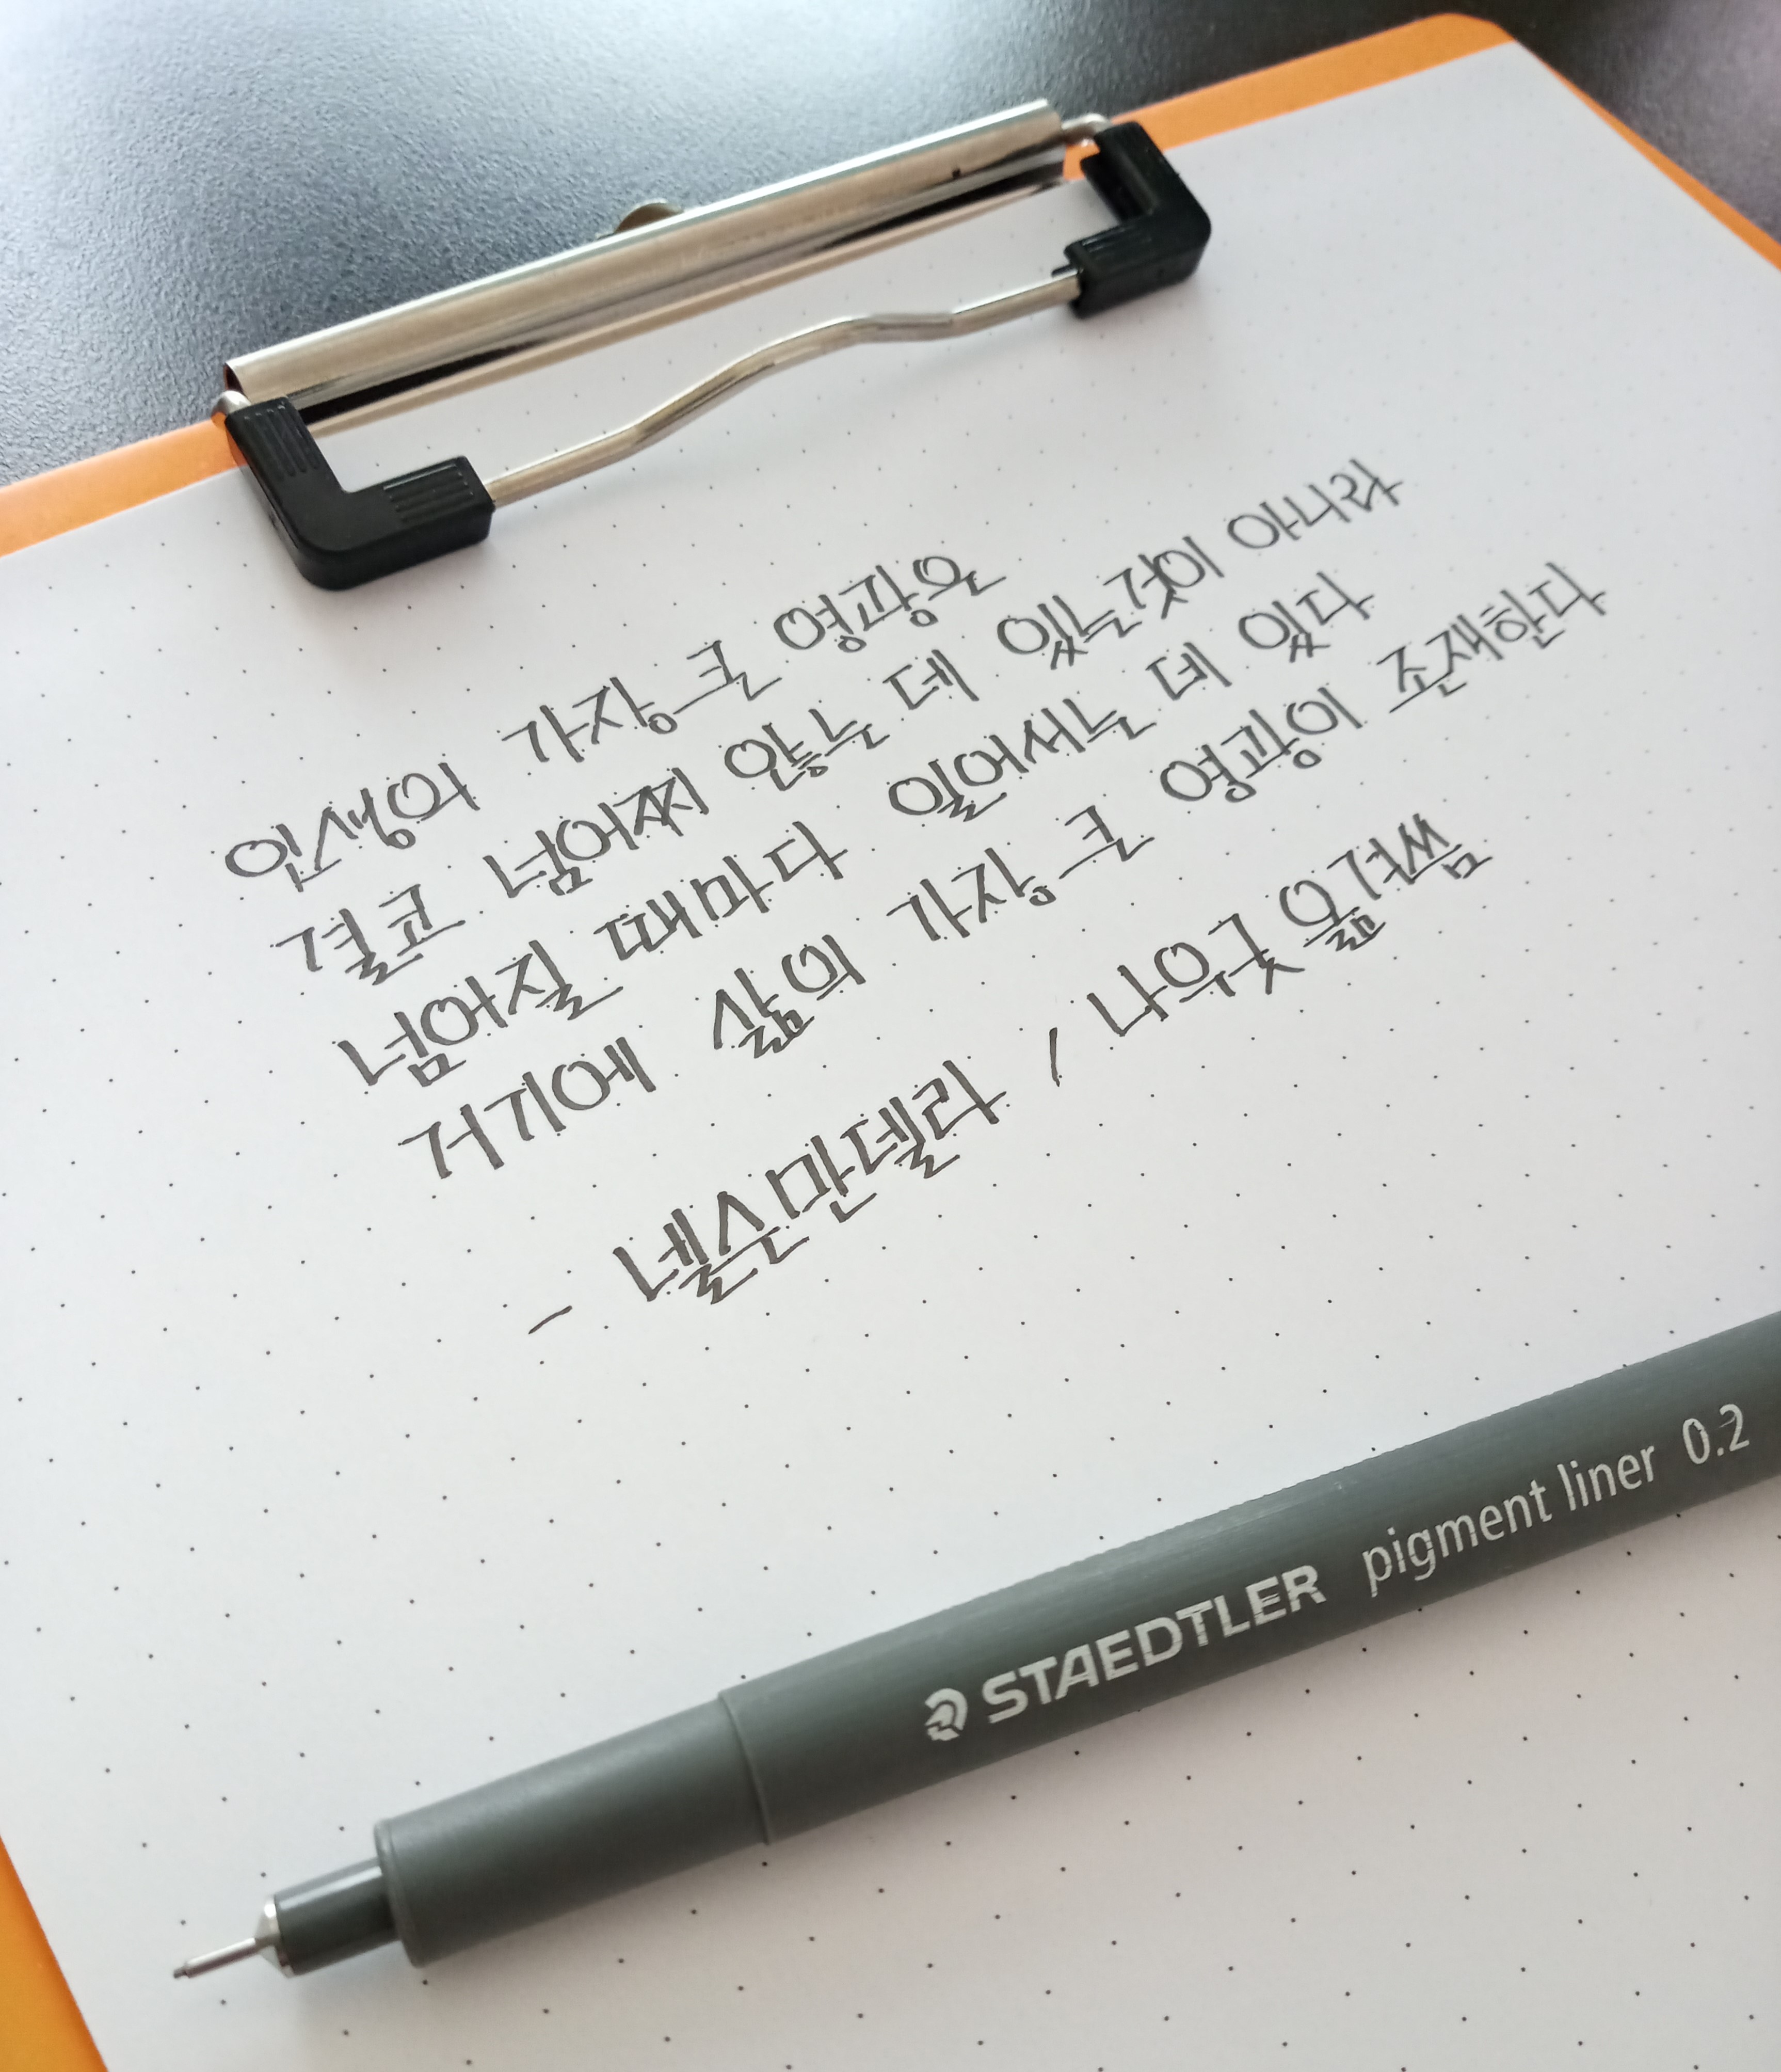 인생의 가장 큰 영광은
결코 넘어찌 않는 데 있는것이 아니라
넘어질 때마다 일어서는 데 있다
거기에 삶의 가장 큰 영광이 존재한다
- 넬슨만델라 / 나우굿 옮겨씀
STAEDTLER pigment liner 0.2